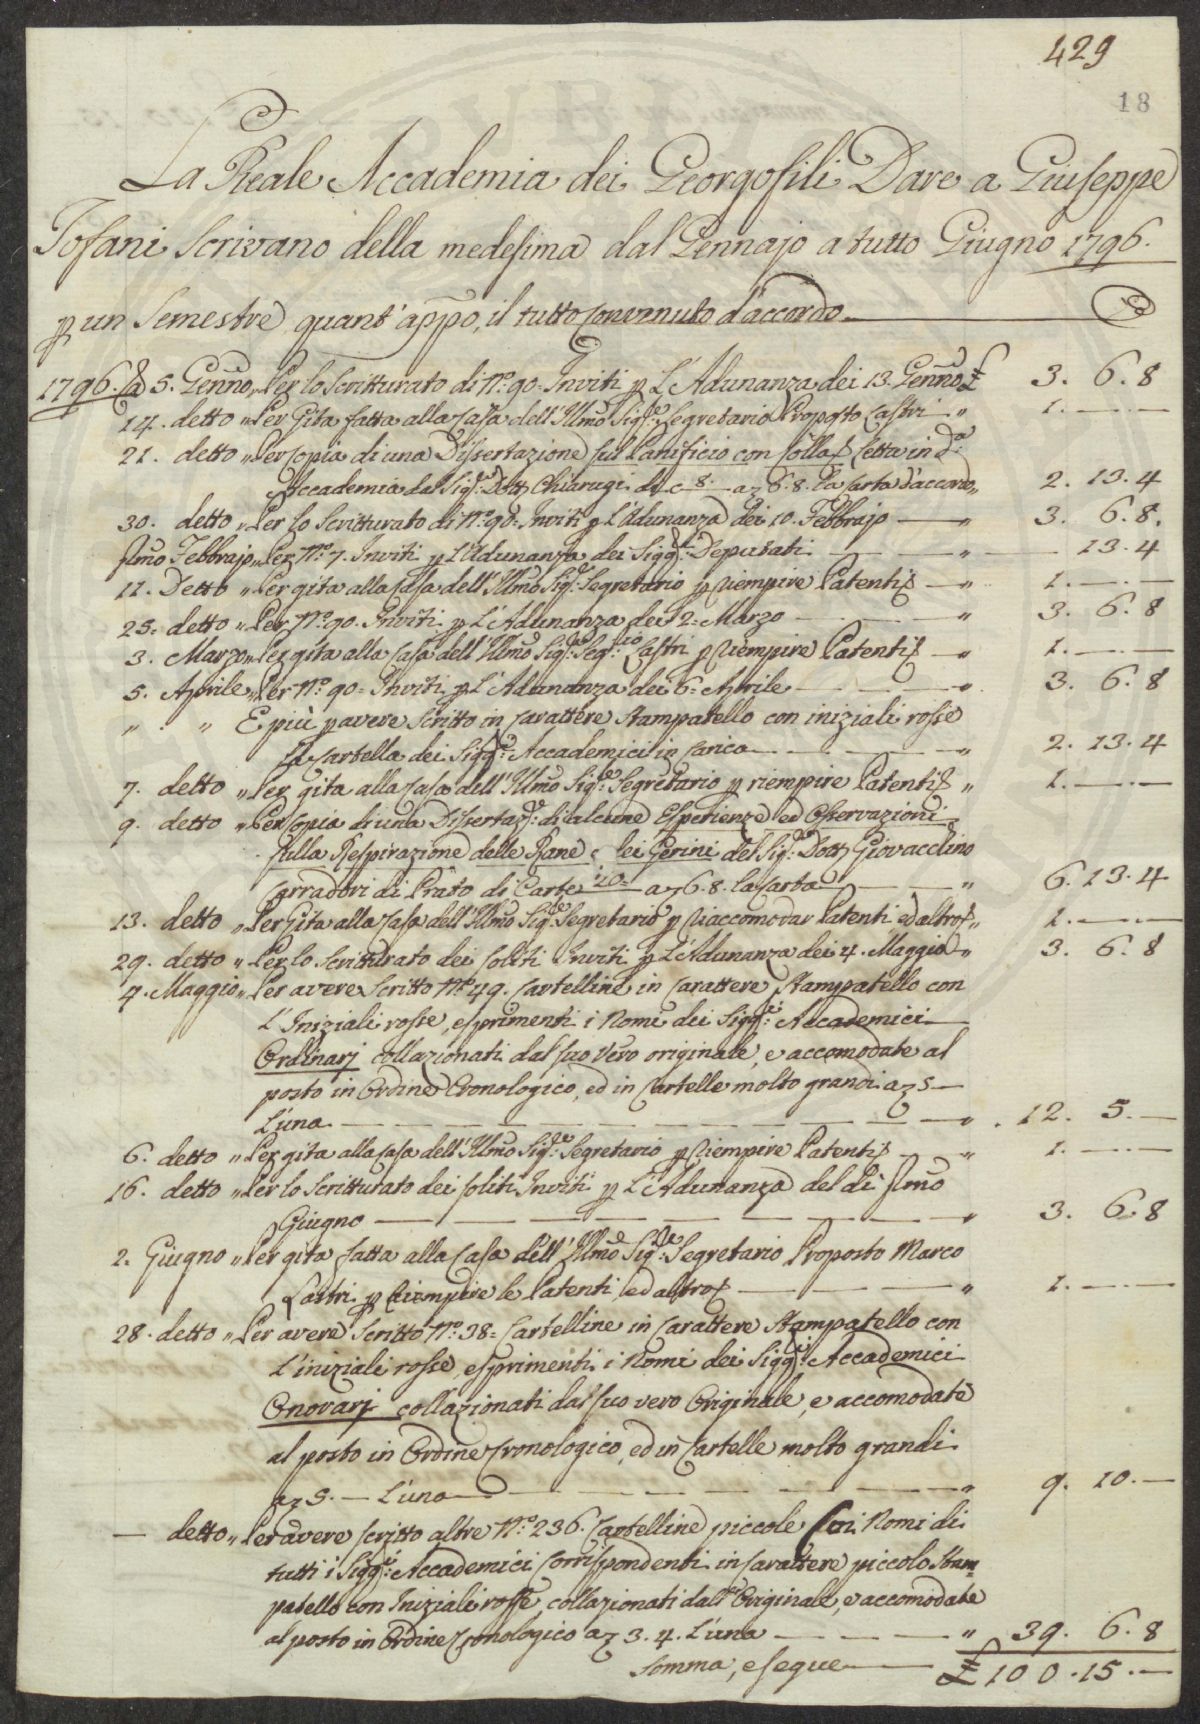 429
18
La Reale Accademia dei Georgofili Dare a Giuseppe
Tofani Scrivano della medesima dal Gennajo a tutto Giugno 1796.
p un Semestre, quant' appo, il tutto convenuto d'accordo
1796. a 5. Genno „ Per lo Scritturato di No. 90 = Inviti p L'Adunanza dei 13. Genno £ 3. 6. 8
14. detto „ Per Gita fatta alla Casa dell' Illmo Sigre Segretario Proposto Lastri „ 1. — . —
21. detto „ Per Copia di una Dissertazione sul Lanificio con Letta in da
Accademia dal Sigre Dott. Chiarugi di C 8 a 6. 8. la Carta d'accordo „ 2. 13. 4
30. detto „ Per lo Scritturato di No. 90 = Inviti p L'Adunanza dei 10. Febbrajo — „ 3. 6. 8.
pmo Febbrajo „ Per No. 7. Inviti p L'Adunanza dei Sigg.ri Deputati — „ — 13. 4
11. Detto „ Per gita alla Casa dell' Illmo Sigre Segretario p riempire Patenti — „ 1. — . —
25. detto „ Per No. 90. Inviti p L'Adunanza dei 2 = Marzo — „ 3. 6. 8
3. Marzo „ Per gita alla Casa dell' Illmo Sigre Segrio Lastri p riempire Patenti — „ 1. — . —
5. Aprile „ Per No. 90 = Inviti p L'Adunanza dei 6 = Aprile — „ 3. 6. 8
„ „ E più p avere Scritto in Carattere Stampatello con iniziali rosse
La Cartella dei Sigg.ri Accademici in Carica — „ 2. 13. 4
7. detto „ Per gita alla Casa dell' Illmo Sigre Segretario p riempire Patenti „ 1. — . —
9. detto „ Per Copia di una Dissertaze di alcune Esperienze ed Osservazioni
sulla Respirazione delle Rane, e dei Gerini del Sigre Dott. Giovacchino
Carradori di Prato di Carte 20 = a 6. 8. la Carta — „ 6. 13. 4
13. detto „ Per Gita alla Casa dell' Illmo Sigre Segretario p riaccomodar Patenti, ed altro „ 1. — . —
29. detto „ Per lo Scritturato dei Soliti Inviti p L'Adunanza dei 4. Maggio „ 3. 6. 8
4. Maggio „ Per avere Scritto No. 49. Cartelline in Carattere Stampatello con
L'Iniziali rosse, esprimenti i Nomi dei Sigg.ri Accademici
Ordinarj collazionati dal suo Vero originale, e accomodate al
posto in Ordine Cronologico, ed in Cartelle molto grandi a 5 —
L'una — „ 12. 5. —
6. detto „ Per gita alla Casa dell' Illmo Sigre Segretario p riempire Patenti — „ 1. — . —
16. detto „ Per lo Scritturato dei soliti Inviti p L'Adunanza del dì pmo
Giugno — „ 3. 6. 8
2. Giugno „ Per gita fatta alla Casa dell' Illmo Sigre Segretario Proposto Marco
Lastri p riempire le Patenti, ed altro — „ 1. — . —
28. detto „ Per avere Scritto No. 38 = Cartelline in Carattere Stampatello con
L'iniziali rosse, esprimenti i Nomi dei Sigg.ri Accademici
Onorarj collazionati dal suo vero Originale, e accomodate
al posto in Ordine Cronologico, ed in Cartelle molto grandi
a 5. — L'una — „ 9. 10. —
— detto „ Per avere scritto altre No. 236. Cartelline piccole Coi Nomi di
tutti i Sigg.ri Accademici Corrispondenti in Carattere piccolo Stam=
patello con Iniziali rosse, collazionati dall' Originale, e accomodate
al posto in Ordine Cronologico a 3. 4. L'una — „ 39. 6. 8
Somma, e segue — £ 100. 15. —